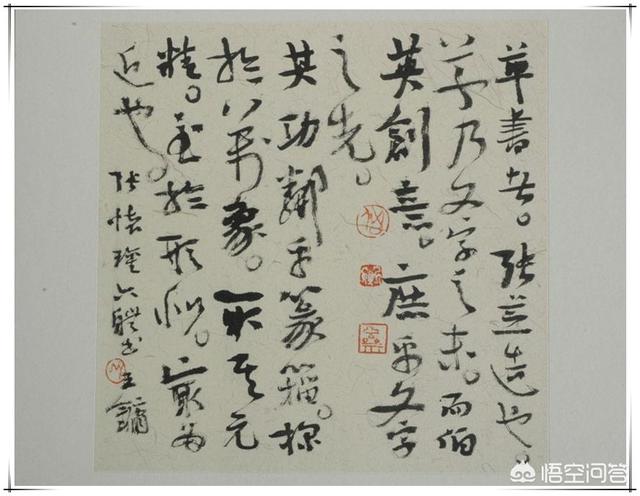 草書者。張芝造也。
草乃文字之末。而伯
英創意。庶乎文字
之先。
其功鄰乎篆籀。探
於萬象。取其元
精。至於形似。最為
近也。
張懷瓘六體書 王鏞
悟空问答